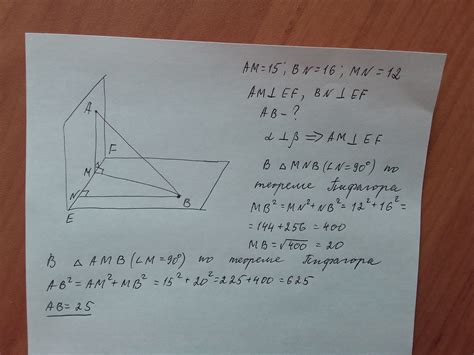 AM=15; BN=16; MN=12
AM⊥EF, BN⊥EF
AB-?
α⊥β ⇒ AM⊥EF
В △MNB (∠N=90°) по
теореме Пифагора
MB²=MN²+NB²=12²+16²=
=144+256=400
MB=√400=20
В △AMB (∠M=90°) по теореме Пифагора
AB²=AM²+MB²=15²+20²=225+400=625
AB=25
A
F
M
N
B
E